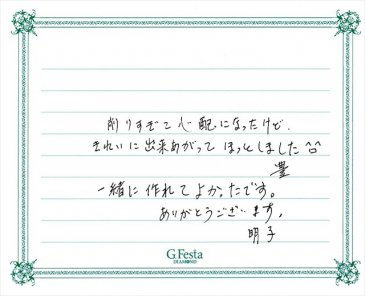 削りすぎて心配になったけど、
きれいに出来あがって ほっとしました^^
豊
一緒に作れてよかったです。
ありがとうございます。
明子
G.Festa
DIAMOND